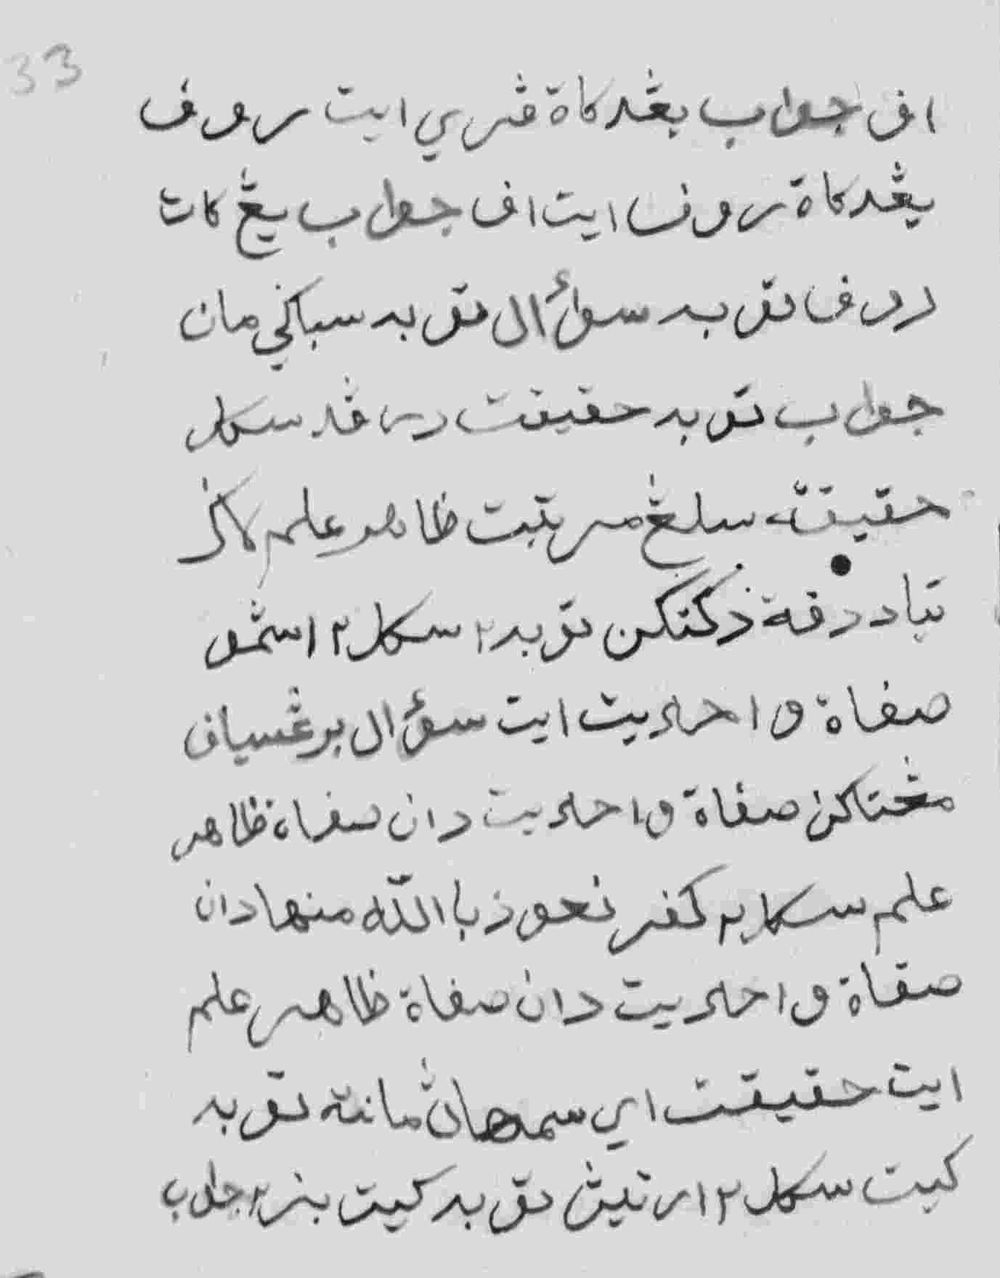 33
اف جواب يڠد كاة ڤري ايت روف
يڠد كاة روف ايت اف جواب يڠ كات
روف توبه سؤال توبه سباكي مان
جواب توبه حقيقت درڤد سكل
حقيقة سلڠ مرتبت ظاهر علم
تياد دفة توبه ٢ سكل ٢
صفاة واحديت ايت سؤال برڠسياف
مڠتاكن صفاة واحديت دان صفاة ظاهر
علم سكل ٢ كفر نعوذ باالله منها دان
صفاة واحديت دان صفاة ظاهر علم
ايت حقيقت اي سمهاث مانة توبه
كيت سكل ٢ ارتيث توبه كيت بنر ٢ جواب